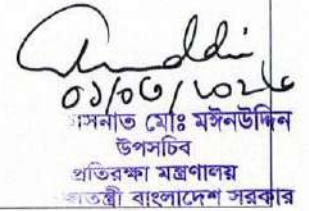 ০১/০৩/২০২৬
মোঃ মঈনউদ্দিন
উপসচিব
প্রতিরক্ষা মন্ত্রণালয়
বাংলাদেশ সরকার